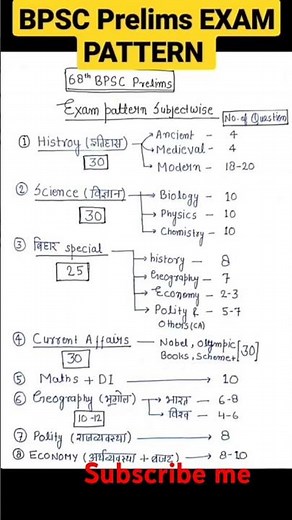 BPSC Prelims EXAM
PATTERN
68th BPSC Prelims
Exam pattern Subjectwise - No. of Question
① Histroy (इतिहास) Ancient - 4
30 Medieval - 4
Modern - 18-20
② Science (विज्ञान) Biology - 10
30 Physics - 10
Chemistry - 10
③ बिहार special history - 8
25 Geography - 7
Economy - 2-3
Polity & Others (CA) - 5-7
④ Current Affairs Nobel, Olympic
30 Books, Scheme+ [30]
⑤ Maths + DI 10
⑥ Geography (भूगोल) भारत - 6-8
10-12 विश्व - 4-6
⑦ Polity (राजव्यवस्था) 8
⑧ ECONOMY (अर्थव्यवस्था + बजट) 8-10
Subscribe me